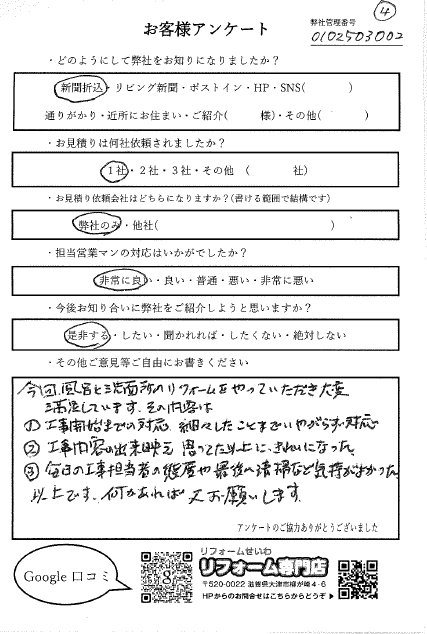 ④
お客様アンケート
弊社管理番号
0102503002
・どのようにして弊社をお知りになりましたか？
新聞折込・リビング新聞・ポストイン・HP・SNS(　　　)
通りがかり・近所にお住まい・ご紹介(　　　様)・その他(　　　)
・お見積りは何社依頼されましたか？
1社・2社・3社・その他　(　　　社)
・お見積り依頼会社はどちらになりますか？(書ける範囲で結構です)
弊社のみ・他社(　　　)
・担当営業マンの対応はいかがでしたか？
非常に良い・良い・普通・悪い・非常に悪い
・今後お知り合いに弊社をご紹介しようと思いますか？
是非する・したい・聞かれれば・したくない・絶対しない
・その他ご意見等ご自由にお書きください
今回風呂と洗面所のリフォームをやっていただき大変
満足しています。その内容は
① 工事開始までの対応 細々したことまでいやがらず対応
② 工事内容の出来映え 思ってた以上に、きれいになった
③ 毎日の工事担当者の態度や最後の清掃など気持がよかった
以上です。何かあれば又お願いします。
アンケートのご協力ありがとうございました
Google 口コミ
リフォームせいわ
リフォーム専門店
〒520-0022 滋賀県大津市柳が崎4-6
HPからのお問合せはこちらからどうぞ ▶